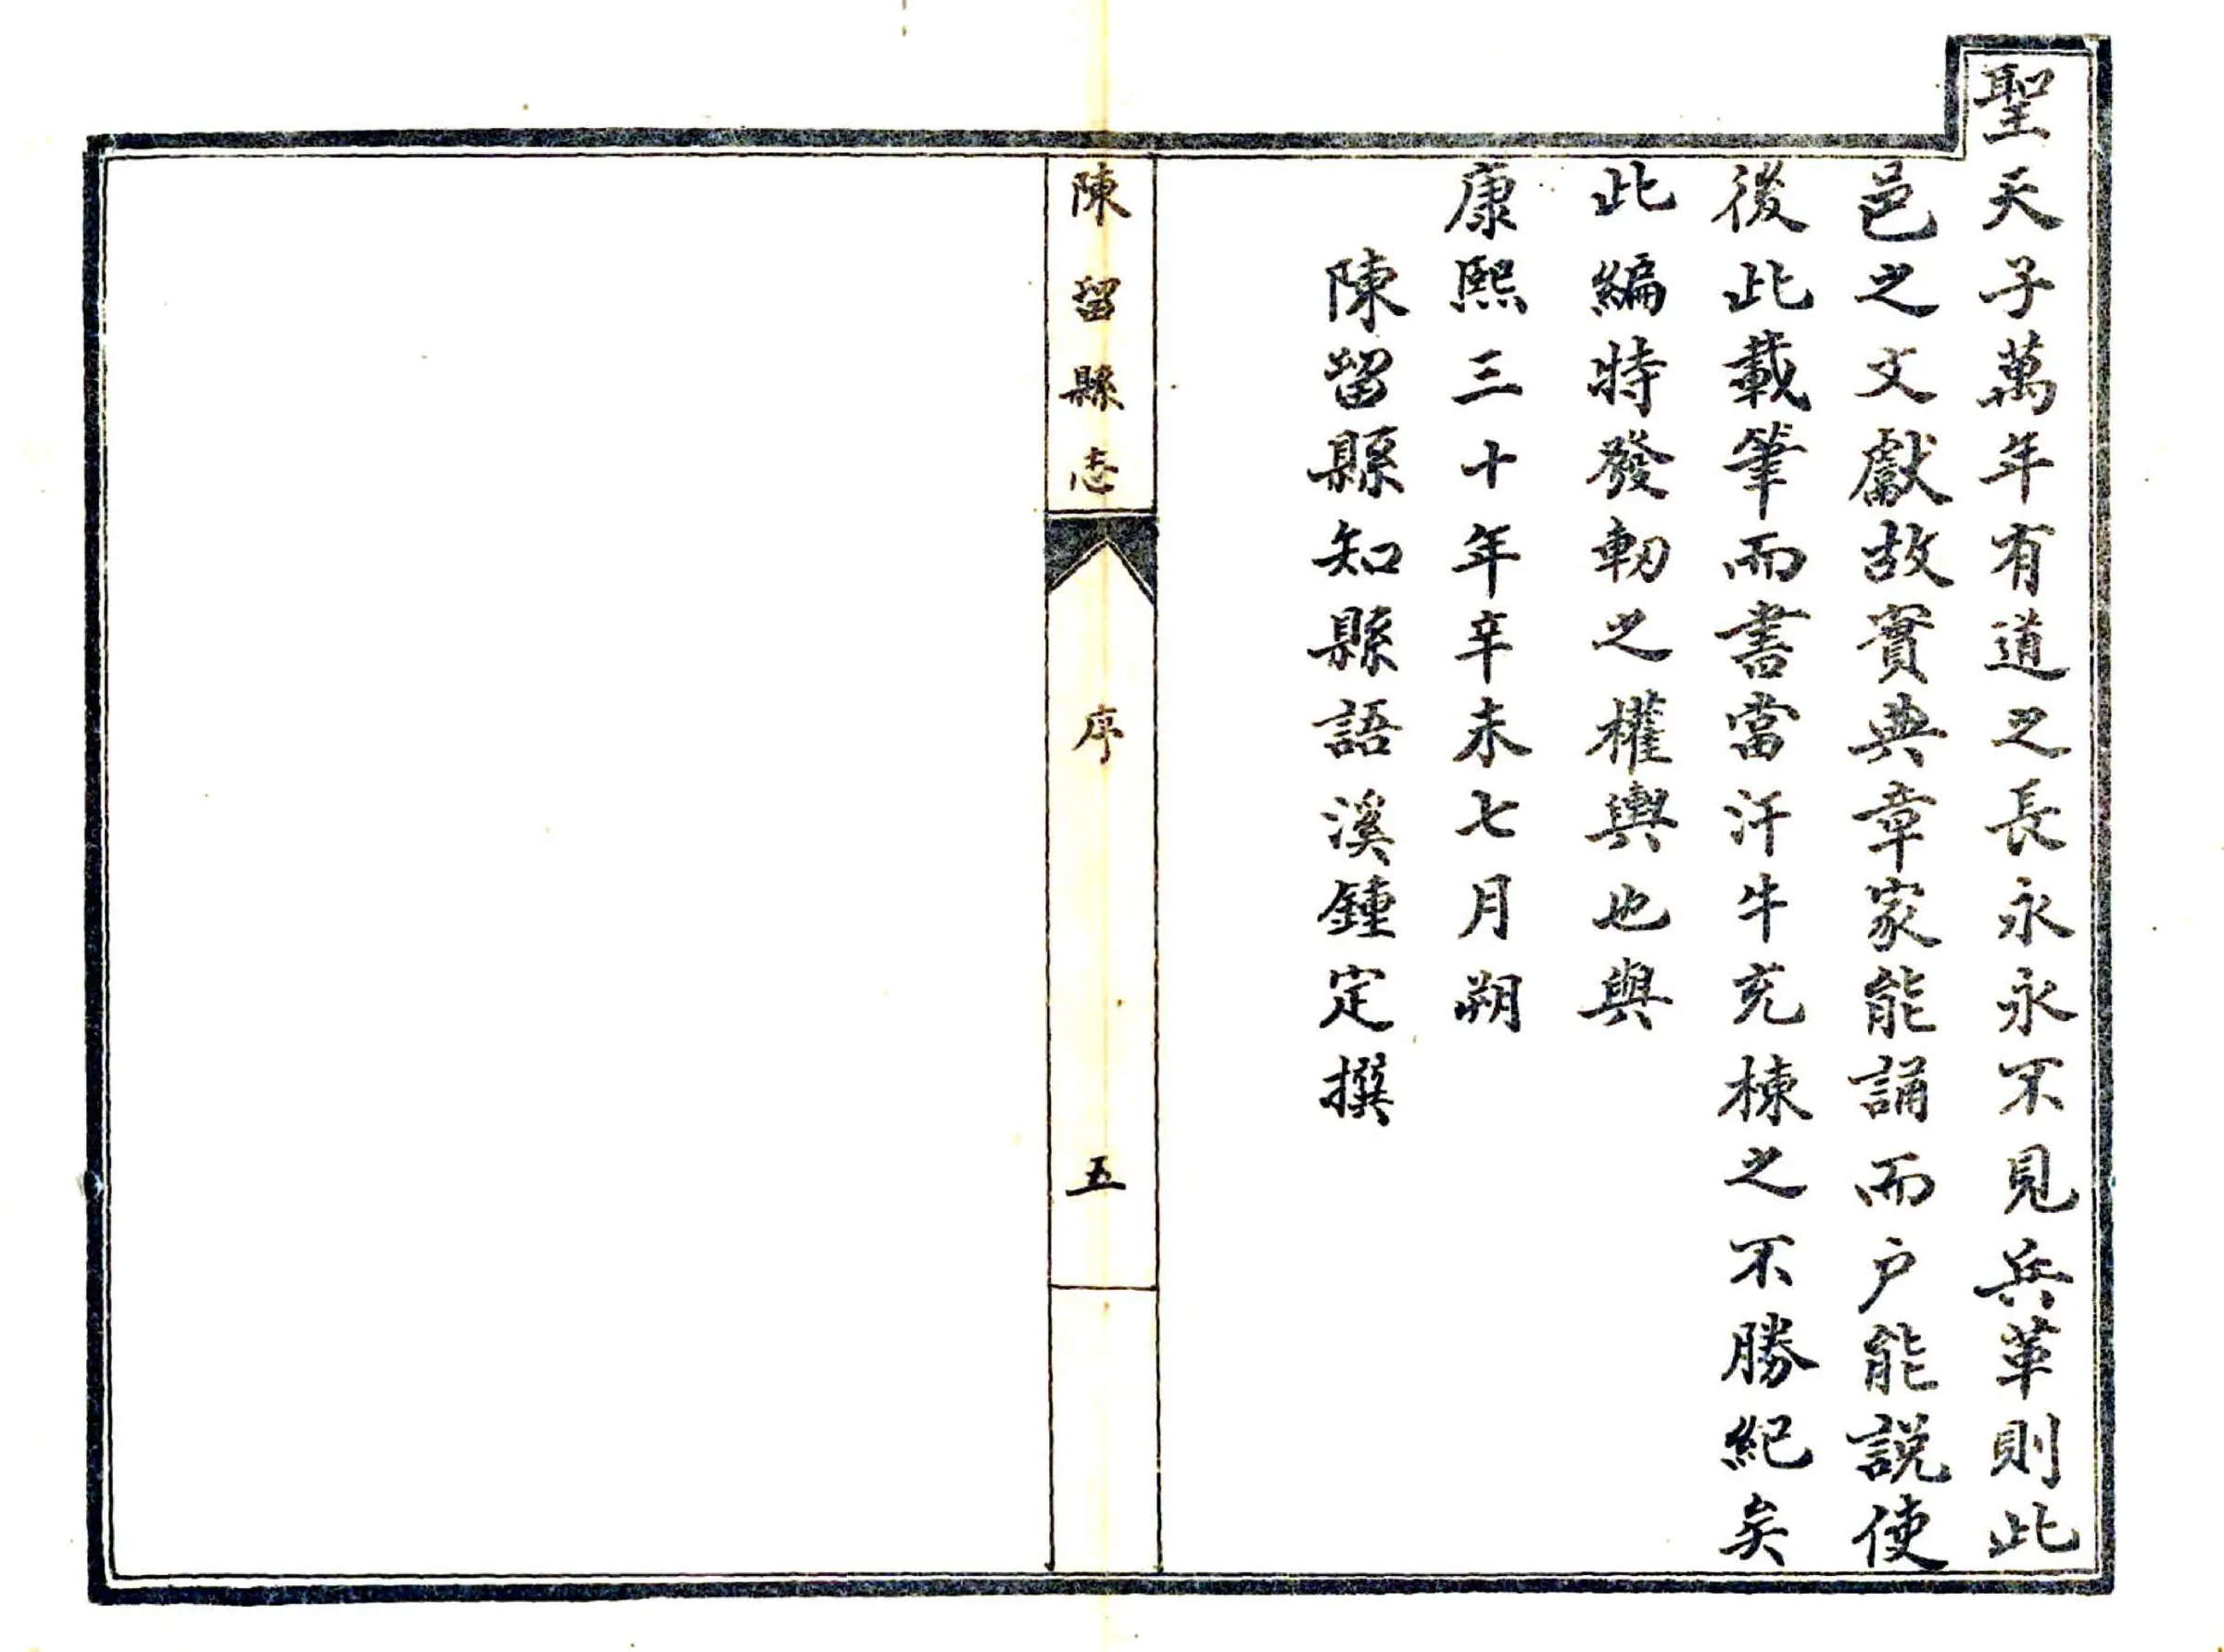 聖天子萬年有道之長永永不見兵革則此
邑之文獻故實典章家能誦而户能説使
後此載筆而書當汗牛充棟之不勝紀矣
此編特發軔之權輿也與
康熙三十年辛未七月朔
陳留縣知縣語溪鍾定撰
陳留縣志
序
五